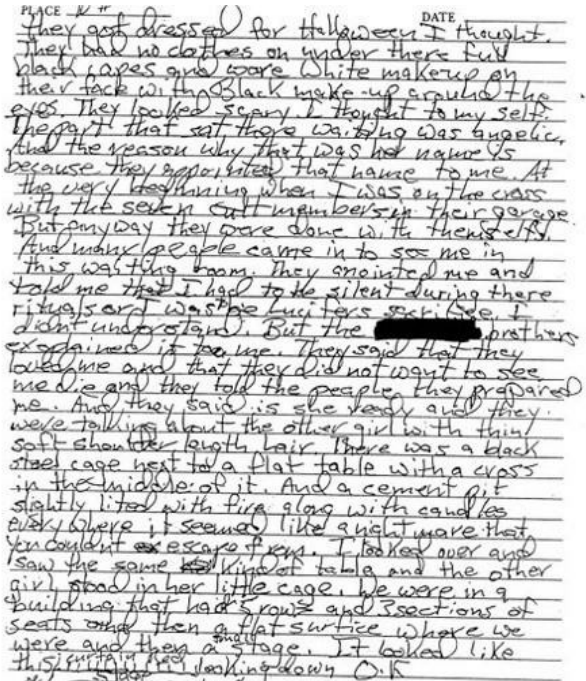 PLACE DATE
They got dressed for Halloween I thought.
They had no clothes on under there full
black capes and wore white makeup on
their face with Black make-up around the
eyes. They looked scary I thought to my self.
The part that sat there waiting was angelic,
And the reason why that was her name is
because they appointed that name to me. At
the very beginning when I was on the cross
with the seven cult members in their garage
But anyway they were done with themselfs.
And many people came in to see me in
this waiting room. They anointed me and
told me that I had to be silent during there
rituals or I was be Lucifers sacrifice. I
didnt understand. But the brothers
explained it too me. They said that they
loved me and that they did not want to see
me die and they told the people they prepared
me. And they said is she ready and they
were talking about the other girl with thin
soft shoulder length hair. There was a black
steel cage next to a flat table with a cross
in the middle of it. And a cement pit
slightly lited with fire along with candles
everywhere it seemed like a nightmare that
you couldnt escape from. I looked over and
saw the same kind of table and the other
girl stood in her little cage. We were in a
building that had 5 rows and 3 sections of
seats and then a flat surfice where we
were and then a small stage. It looked like
this looking down O.K